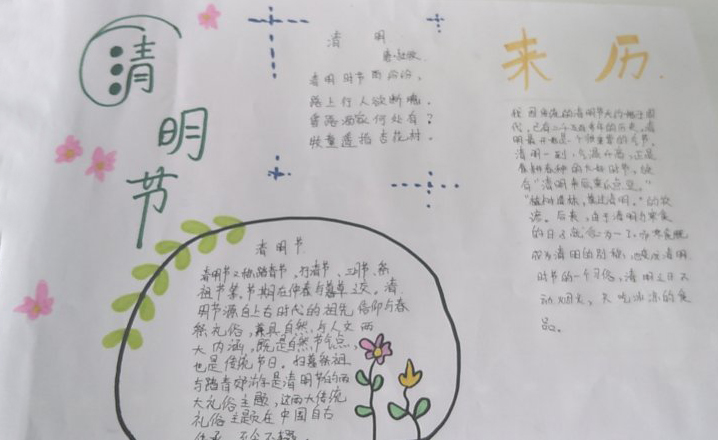 清明节
清 明
唐·杜牧
清明时节雨纷纷，
路上行人欲断魂。
借问酒家何处有？
牧童遥指杏花村。
来 历.
我国传统的清明节大约始于周
代，已有二千五百多年的历史，清
明最开始是一个很重要的节气，
清明一到，气温升高，正是
春耕春种的大好时节，故
有"清明前后，种瓜点豆。"
"植树造林，莫过清明。"的农
谚。后来，由于清明与寒食
的日子接近
成为清明的别称，也变成清明
时节的一个习俗，清明之日不
动烟火，只吃冰凉的食
品。
清明节
清明节又称踏青节、行清节、三月节、祭
祖节等，节期在仲春与暮春之交。清
明节源自上古时代的祖先信仰与春
祭礼俗，兼具自然与人文两
大内涵，既是自然节气点，
也是传统节日。扫墓祭祖
与踏青郊游是清明节的两
大礼俗主题，这两大传统
礼俗主题在中国自古
传承，至今不辍。